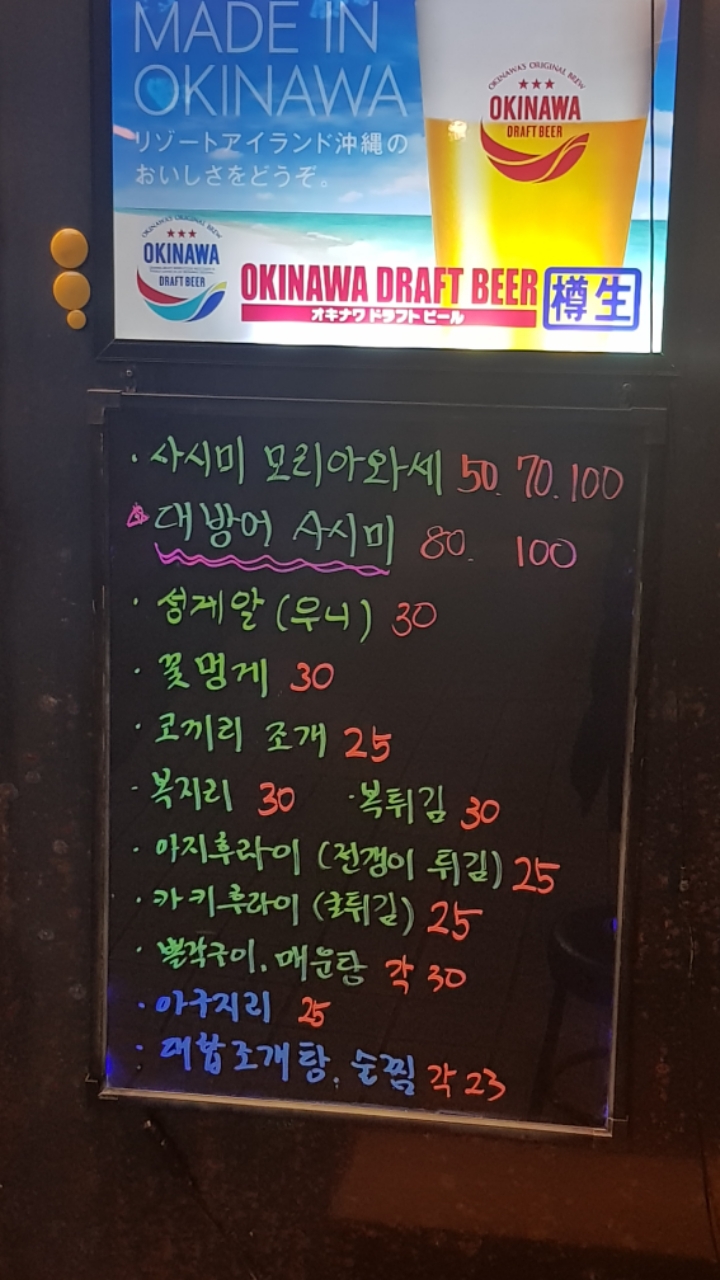 MADE IN
OKINAWA
リゾートアイランド沖縄の
おいしさをどうぞ。
OKINAWA'S ORIGINAL BREW
OKINAWA
DRAFT BEER
OKINAWA'S ORIGINAL BREW
OKINAWA
DRAFT BEER
OKINAWA DRAFT BEER 樽生
オキナワドラフトビール
· 사시미 모리아와세 50. 70. 100
대방어 사시미 80. 100
· 성게알 (우니) 30
· 꽃멍게 30
· 코끼리 조개 25
· 복지리 30 · 복튀김 30
· 아지후라이 (전갱이 튀김) 25
· 카키후라이 (굴튀김) 25
· 뽈락구이. 매운탕 각 30
· 아구지리 25
· 대합조개탕. 술찜 각 23